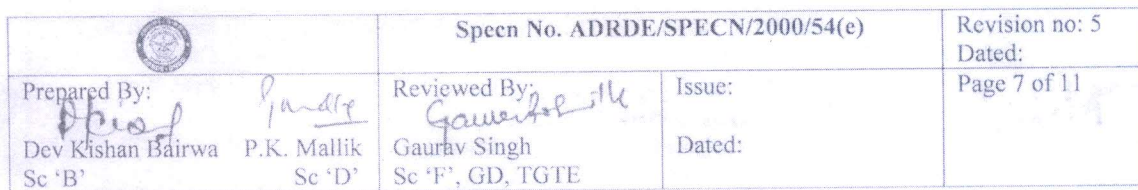 Specn No. ADRDE/SPECN/2000/54(e)
Revision no: 5
Dated:
Prepared By:
Dev Kishan Bairwa P.K. Mallik
Sc ‘B’ Sc ‘D’
Reviewed By:
Gaurav Singh
Sc ‘F’, GD, TGTE
Issue:
Dated:
Page 7 of 11